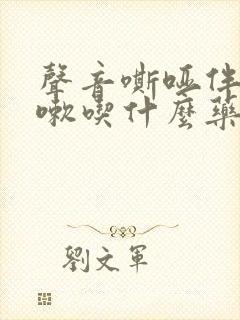 聲音嘶啞伴
嗽喫什麼藥
劉文軍